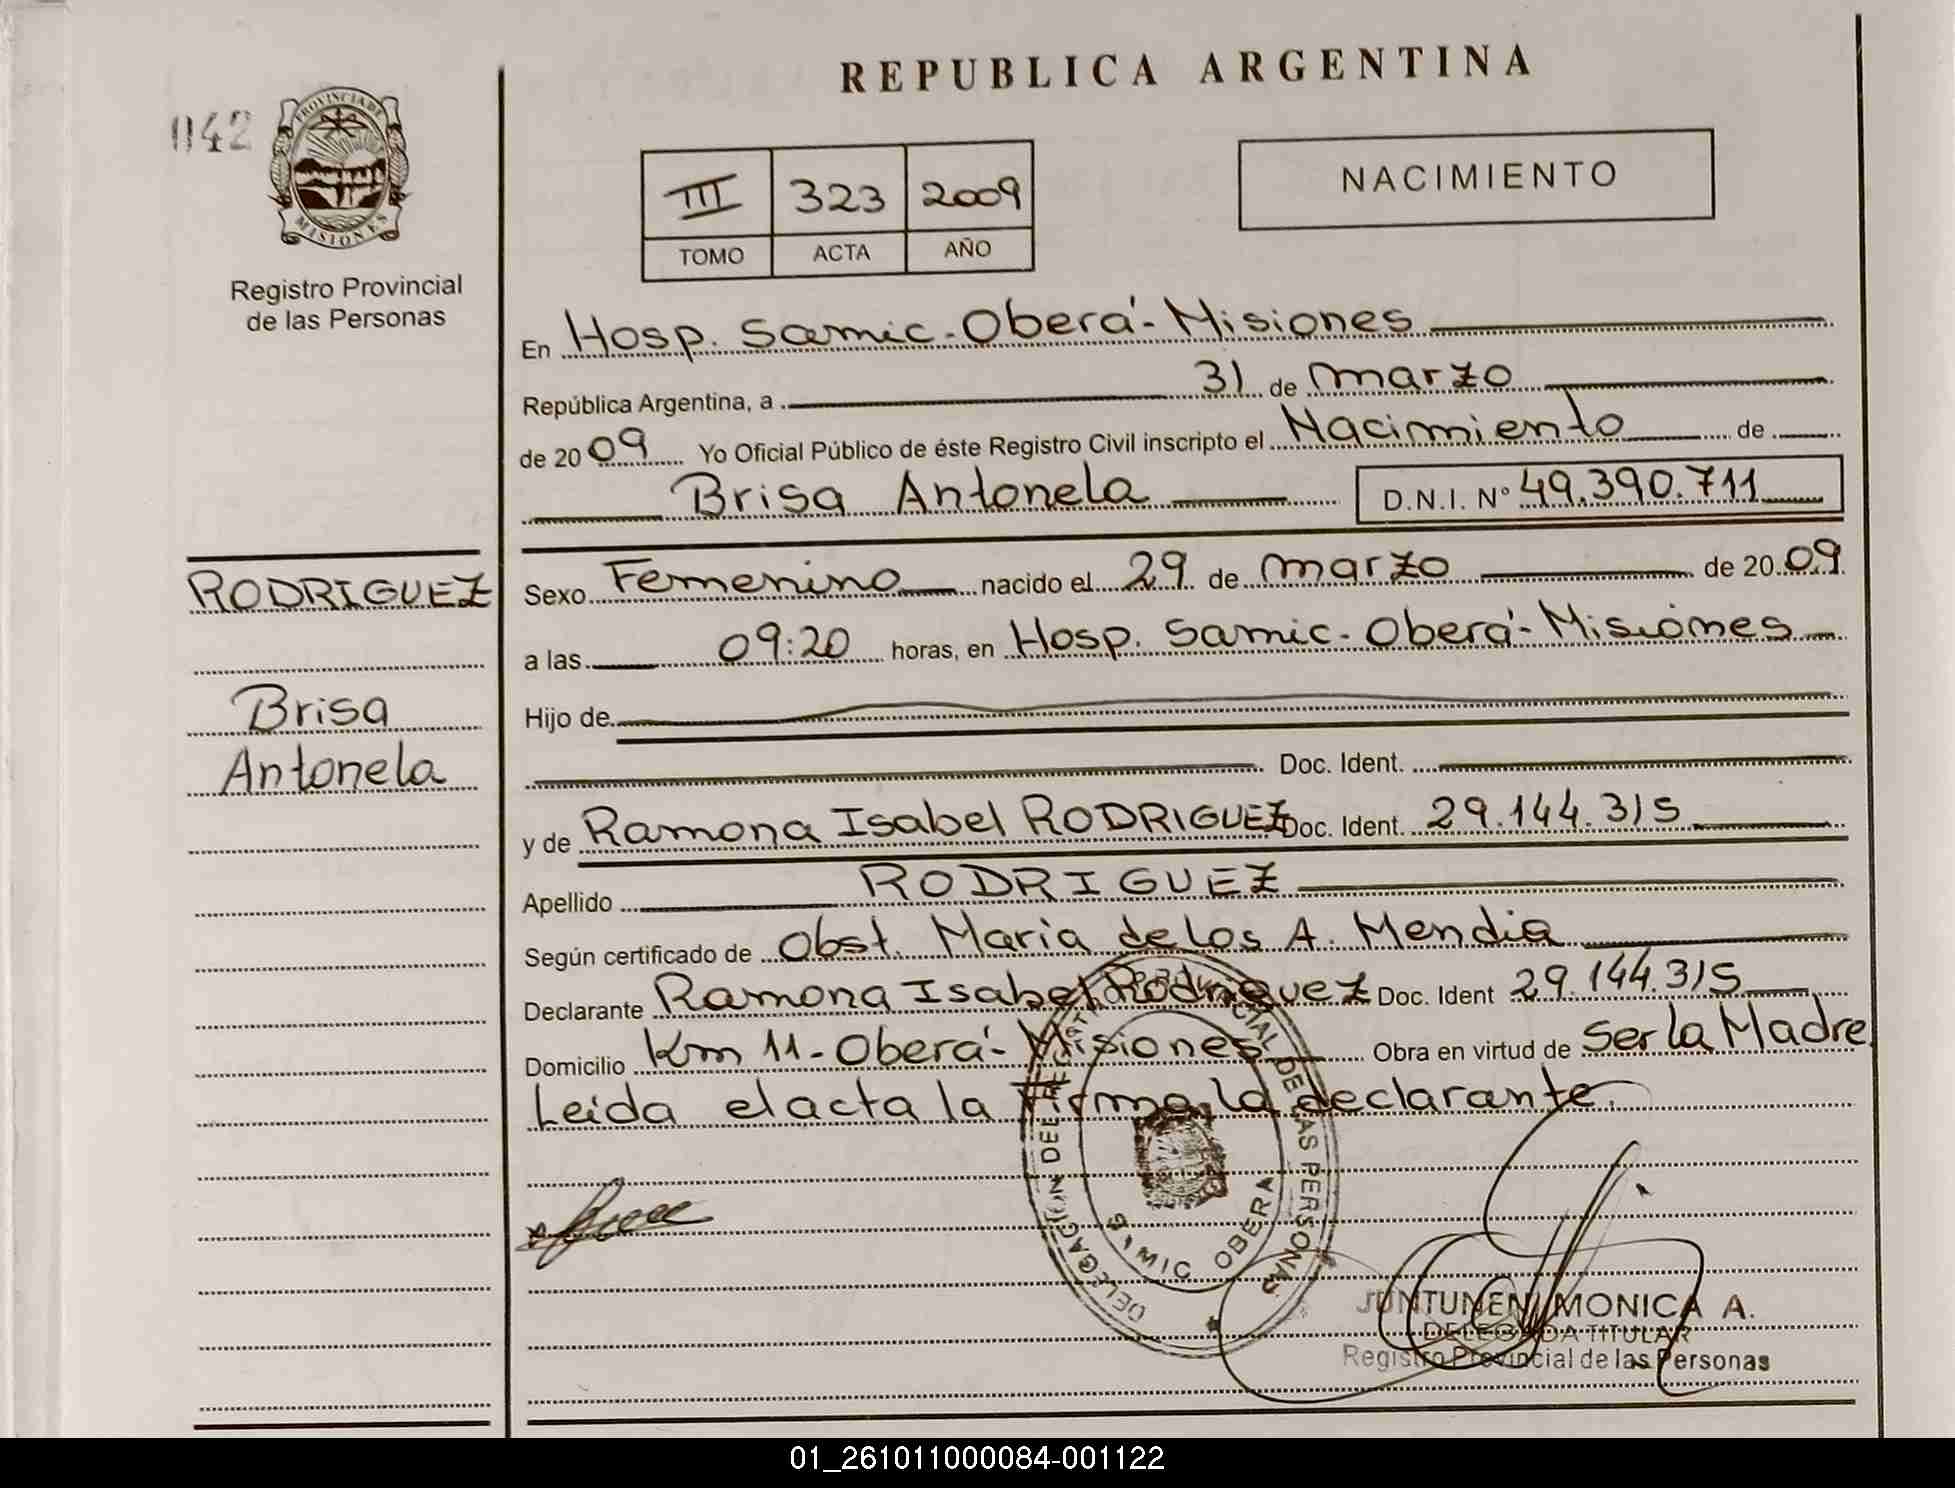 REPUBLICA ARGENTINA
042
PROVINCIA DE
MISIONES
Registro Provincial
de las Personas
III 323 2009
TOMO ACTA AÑO
NACIMIENTO
En Hosp. Samic - Oberá - Misiones
República Argentina, a 31 de marzo
de 2009 Yo Oficial Público de éste Registro Civil inscripto el Nacimiento de
Brisa Antonela D.N.I. Nº 49.390.711
RODRIGUEZ
Brisa
Antonela
Sexo Femenino nacido el 29 de marzo de 2009
a las 09:20 horas, en Hosp. Samic - Oberá - Misiones
Hijo de
Doc. Ident.
y de Ramona Isabel RODRIGUEZ Doc. Ident. 29.144.315
Apellido RODRIGUEZ
Según certificado de Obst. Maria de los A. Mendia
Declarante Ramona Isabel Rodriguez Doc. Ident 29.144.315
Domicilio Km 11 - Oberá - Misiones Obra en virtud de Ser la Madre
Leida el acta la firma la declarante.
DELEGACION DEL REGISTRO PROVINCIAL DE LAS PERSONAS
SAMIC OBERA
JUNTUNEN MONICA A.
DELEGADA TITULAR
Registro Provincial de las Personas
01_261011000084-001122